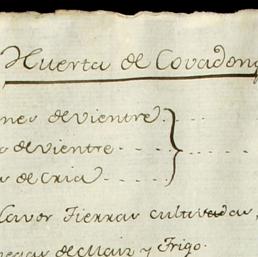 Huerta de Covadong
ones de Vientre
s de Vientre
s de Cria
lavor Tierras cultivadas,
negas de Maiz y Trigo.